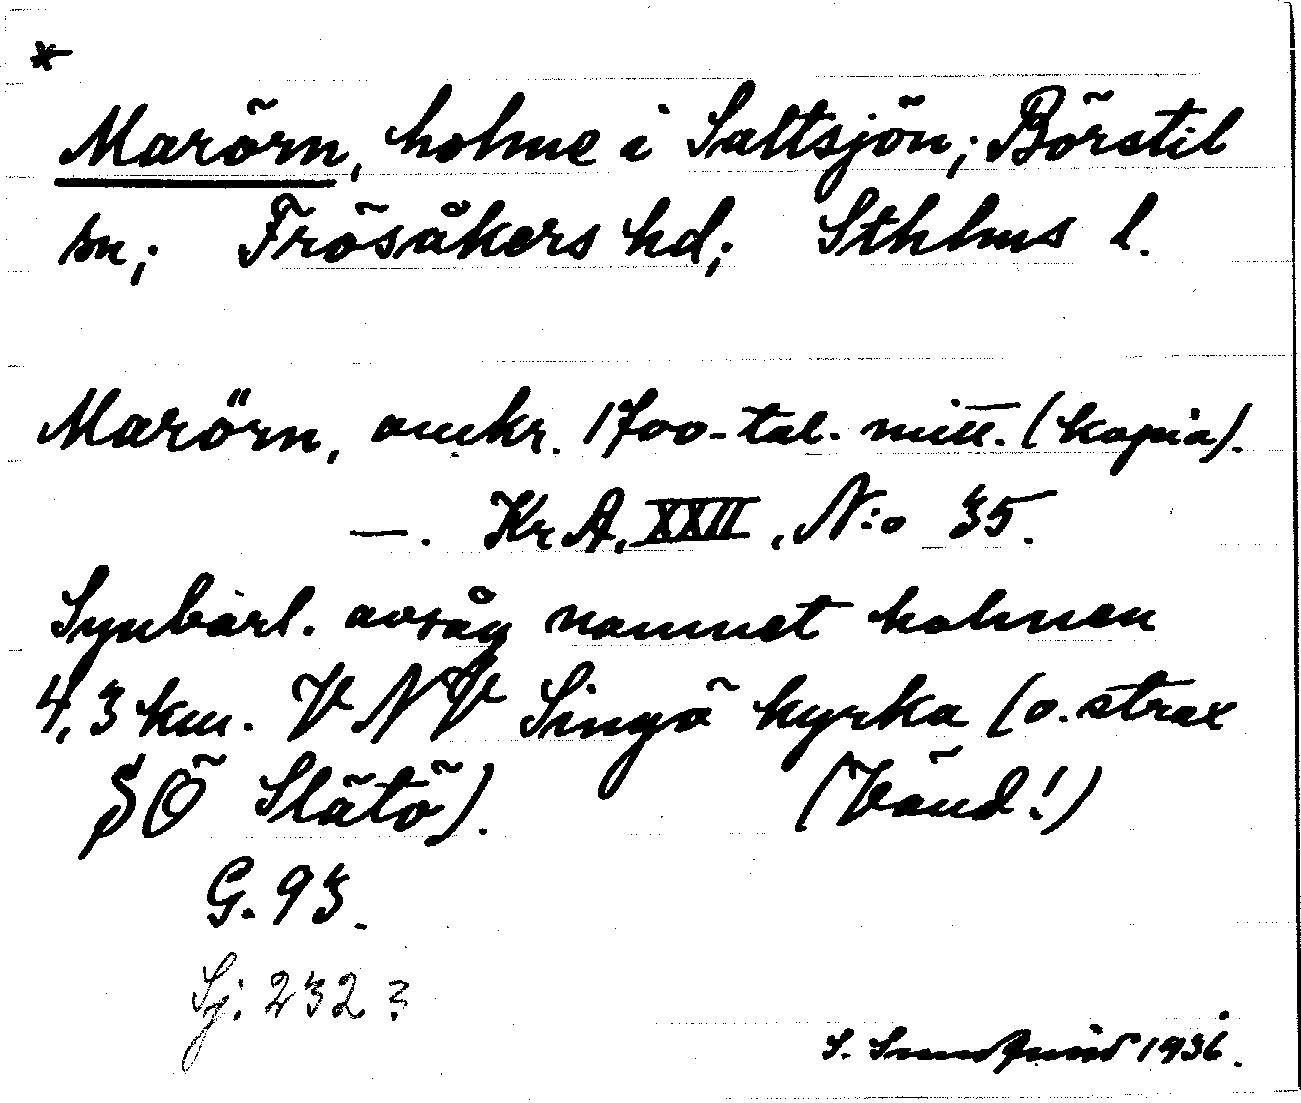 *
Marörn, holme i Saltsjön; Börstil
sn; Frösåkers hd; Sthlms l.
Marörn, omkr. 1700-tal. mitt. (kopia).
—. Kr A. XXII, N:o 35.
Synbarl. avsåg namnet holmen
4,3 km. VNV Singö kyrka (o. strax
SÖ Slätö). (Vänd!)
G. 93.
Sj. 232?
S. Sundquist 1936.